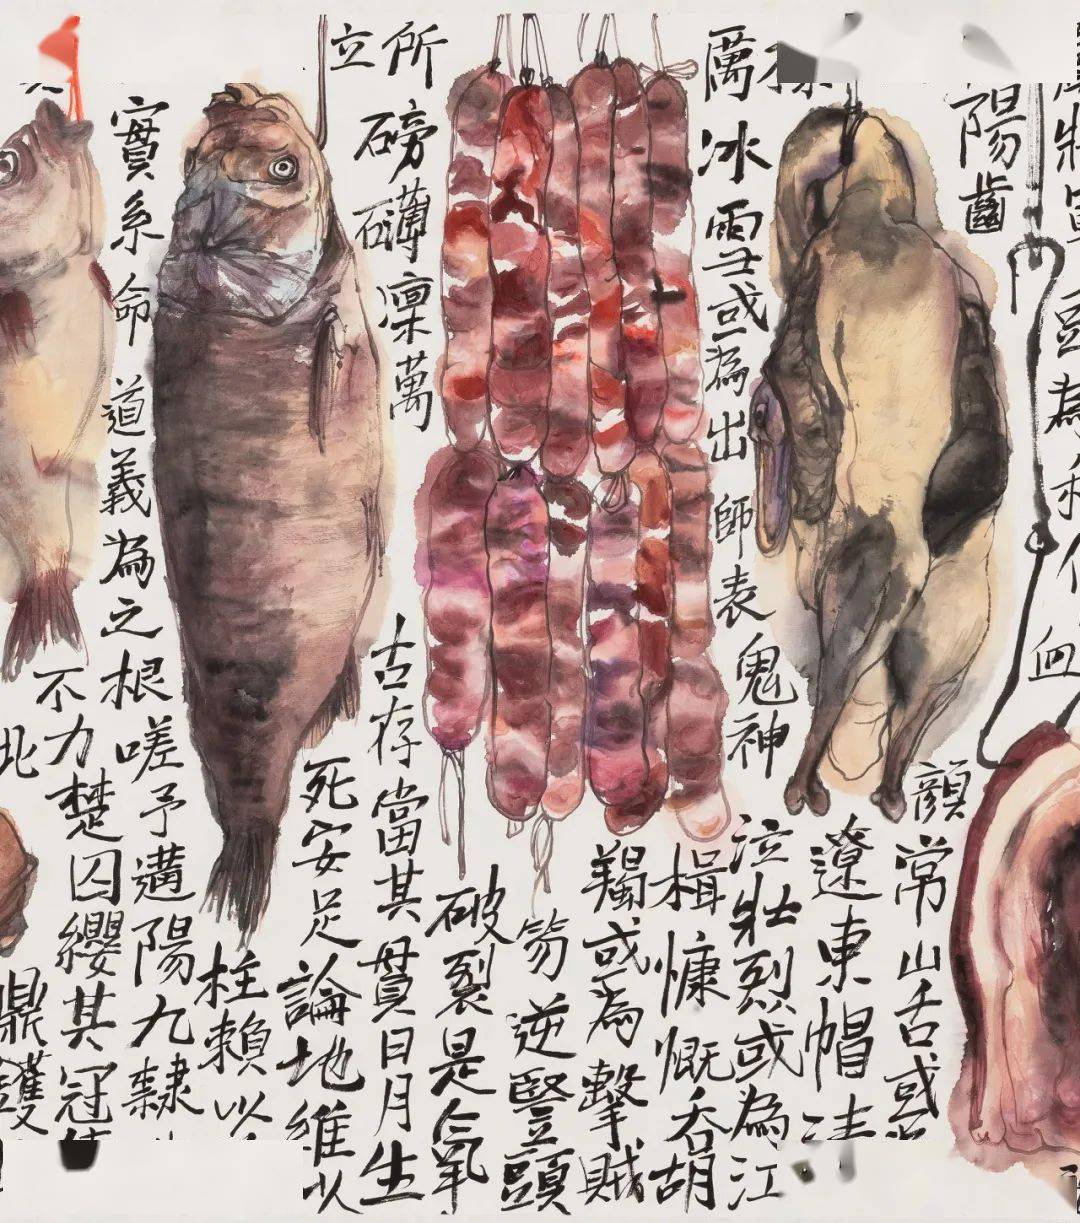 為血
陽齒
顏常山舌或
遼東帽清
厲冰雪或為出師表鬼神
泣壯烈或為江
楫慷慨吞胡
羯或為擊賊
笏逆豎頭
破裂是氣
所磅礴凜萬
古存當其貫日月生
立
死安足論地維以
柱賴以
實系命道義為之根
嗟予遘陽九隸
不力楚囚纓其冠
北
鼎鑊